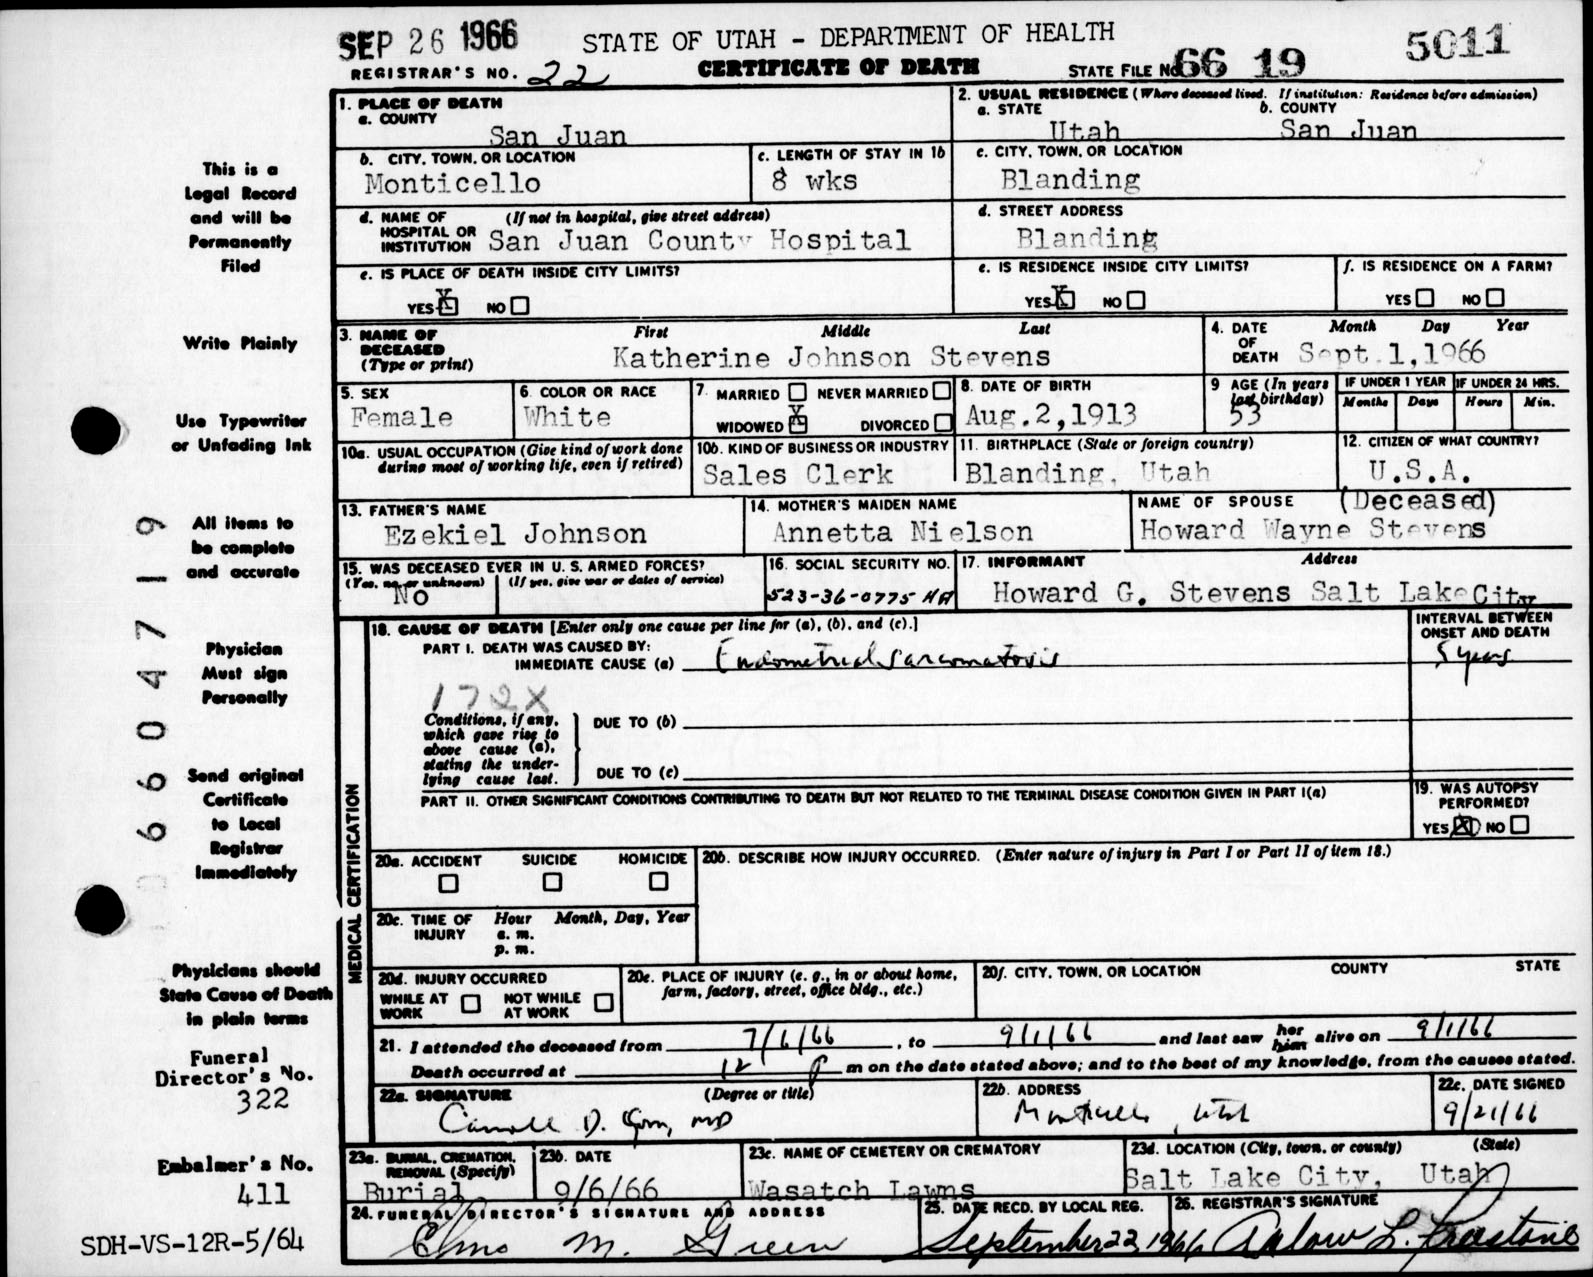 SEP 26 1966 STATE OF UTAH - DEPARTMENT OF HEALTH 5011
REGISTRAR'S NO. 22 CERTIFICATE OF DEATH STATE FILE NO. 66 19
1. PLACE OF DEATH
a. COUNTY
San Juan
2. USUAL RESIDENCE (Where deceased lived. If institution: Residence before admission)
a. STATE b. COUNTY
Utah San Juan
b. CITY, TOWN, OR LOCATION
Monticello
c. LENGTH OF STAY IN 1b
8 wks
c. CITY, TOWN, OR LOCATION
Blanding
d. NAME OF (If not in hospital, give street address)
HOSPITAL OR
INSTITUTION San Juan County Hospital
d. STREET ADDRESS
Blanding
e. IS PLACE OF DEATH INSIDE CITY LIMITS?
YES X NO
e. IS RESIDENCE INSIDE CITY LIMITS?
YES X NO
f. IS RESIDENCE ON A FARM?
YES NO
3. NAME OF First Middle Last
DECEASED
(Type or print) Katherine Johnson Stevens
4. DATE Month Day Year
OF
DEATH Sept.1,1966
5. SEX
Female
6. COLOR OR RACE
White
7. MARRIED NEVER MARRIED
WIDOWED X DIVORCED
8. DATE OF BIRTH
Aug.2,1913
9 AGE (In years
last birthday)
53
IF UNDER 1 YEAR IF UNDER 24 HRS.
Months Days Hours Min.
10a. USUAL OCCUPATION (Give kind of work done
during most of working life, even if retired)
10b. KIND OF BUSINESS OR INDUSTRY
Sales Clerk
11. BIRTHPLACE (State or foreign country)
Blanding, Utah
12. CITIZEN OF WHAT COUNTRY?
U.S.A.
13. FATHER'S NAME
Ezekiel Johnson
14. MOTHER'S MAIDEN NAME
Annetta Nielson
NAME OF SPOUSE (Deceased)
Howard Wayne Stevens
15. WAS DECEASED EVER IN U. S. ARMED FORCES?
(Yes, no, or unknown) (If yes, give war or dates of service)
No
16. SOCIAL SECURITY NO.
523-36-0775 HA
17. INFORMANT Address
Howard G. Stevens Salt Lake City
18. CAUSE OF DEATH [Enter only one cause per line for (a), (b), and (c).]
PART I. DEATH WAS CAUSED BY:
IMMEDIATE CAUSE (a) Endometrial Sarcomatosis
INTERVAL BETWEEN
ONSET AND DEATH
5 years
172X
Conditions, if any,
which gave rise to
above cause (a),
stating the under-
lying cause last.
DUE TO (b)
DUE TO (c)
PART II. OTHER SIGNIFICANT CONDITIONS CONTRIBUTING TO DEATH BUT NOT RELATED TO THE TERMINAL DISEASE CONDITION GIVEN IN PART I(a)
19. WAS AUTOPSY
PERFORMED?
YES X NO
MEDICAL CERTIFICATION
20a. ACCIDENT SUICIDE HOMICIDE
20b. DESCRIBE HOW INJURY OCCURRED. (Enter nature of injury in Part I or Part II of item 18.)
20c. TIME OF Hour Month, Day, Year
INJURY a. m.
p. m.
20d. INJURY OCCURRED
WHILE AT NOT WHILE
WORK AT WORK
20e. PLACE OF INJURY (e. g., in or about home,
farm, factory, street, office bldg., etc.)
20f. CITY, TOWN, OR LOCATION COUNTY STATE
21. I attended the deceased from 7/6/66, to 9/1/66 and last saw her him alive on 9/1/66
Death occurred at 12 P m on the date stated above; and to the best of my knowledge, from the causes stated.
22a. SIGNATURE (Degree or title)
D. MD
22b. ADDRESS
Monticello, Utah
22c. DATE SIGNED
9/21/66
23a. BURIAL, CREMATION,
REMOVAL (Specify)
Burial
23b. DATE
9/6/66
23c. NAME OF CEMETERY OR CREMATORY
Wasatch Lawns
23d. LOCATION (City, town, or county) (State)
Salt Lake City, Utah
24. FUNERAL DIRECTOR'S SIGNATURE AND ADDRESS
Elmo M. Green
25. DATE RECD. BY LOCAL REG.
September 22, 1966
26. REGISTRAR'S SIGNATURE
L.
This is a
Legal Record
and will be
Permanently
Filed
Write Plainly
Use Typewriter
or Unfading Ink
All items to
be complete
and accurate
Physician
Must sign
Personally
Send original
Certificate
to Local
Registrar
Immediately
Physicians should
State Cause of Death
in plain terms
Funeral
Director's No.
322
Embalmer's No.
411
SDH-VS-12R-5/64
66 04719